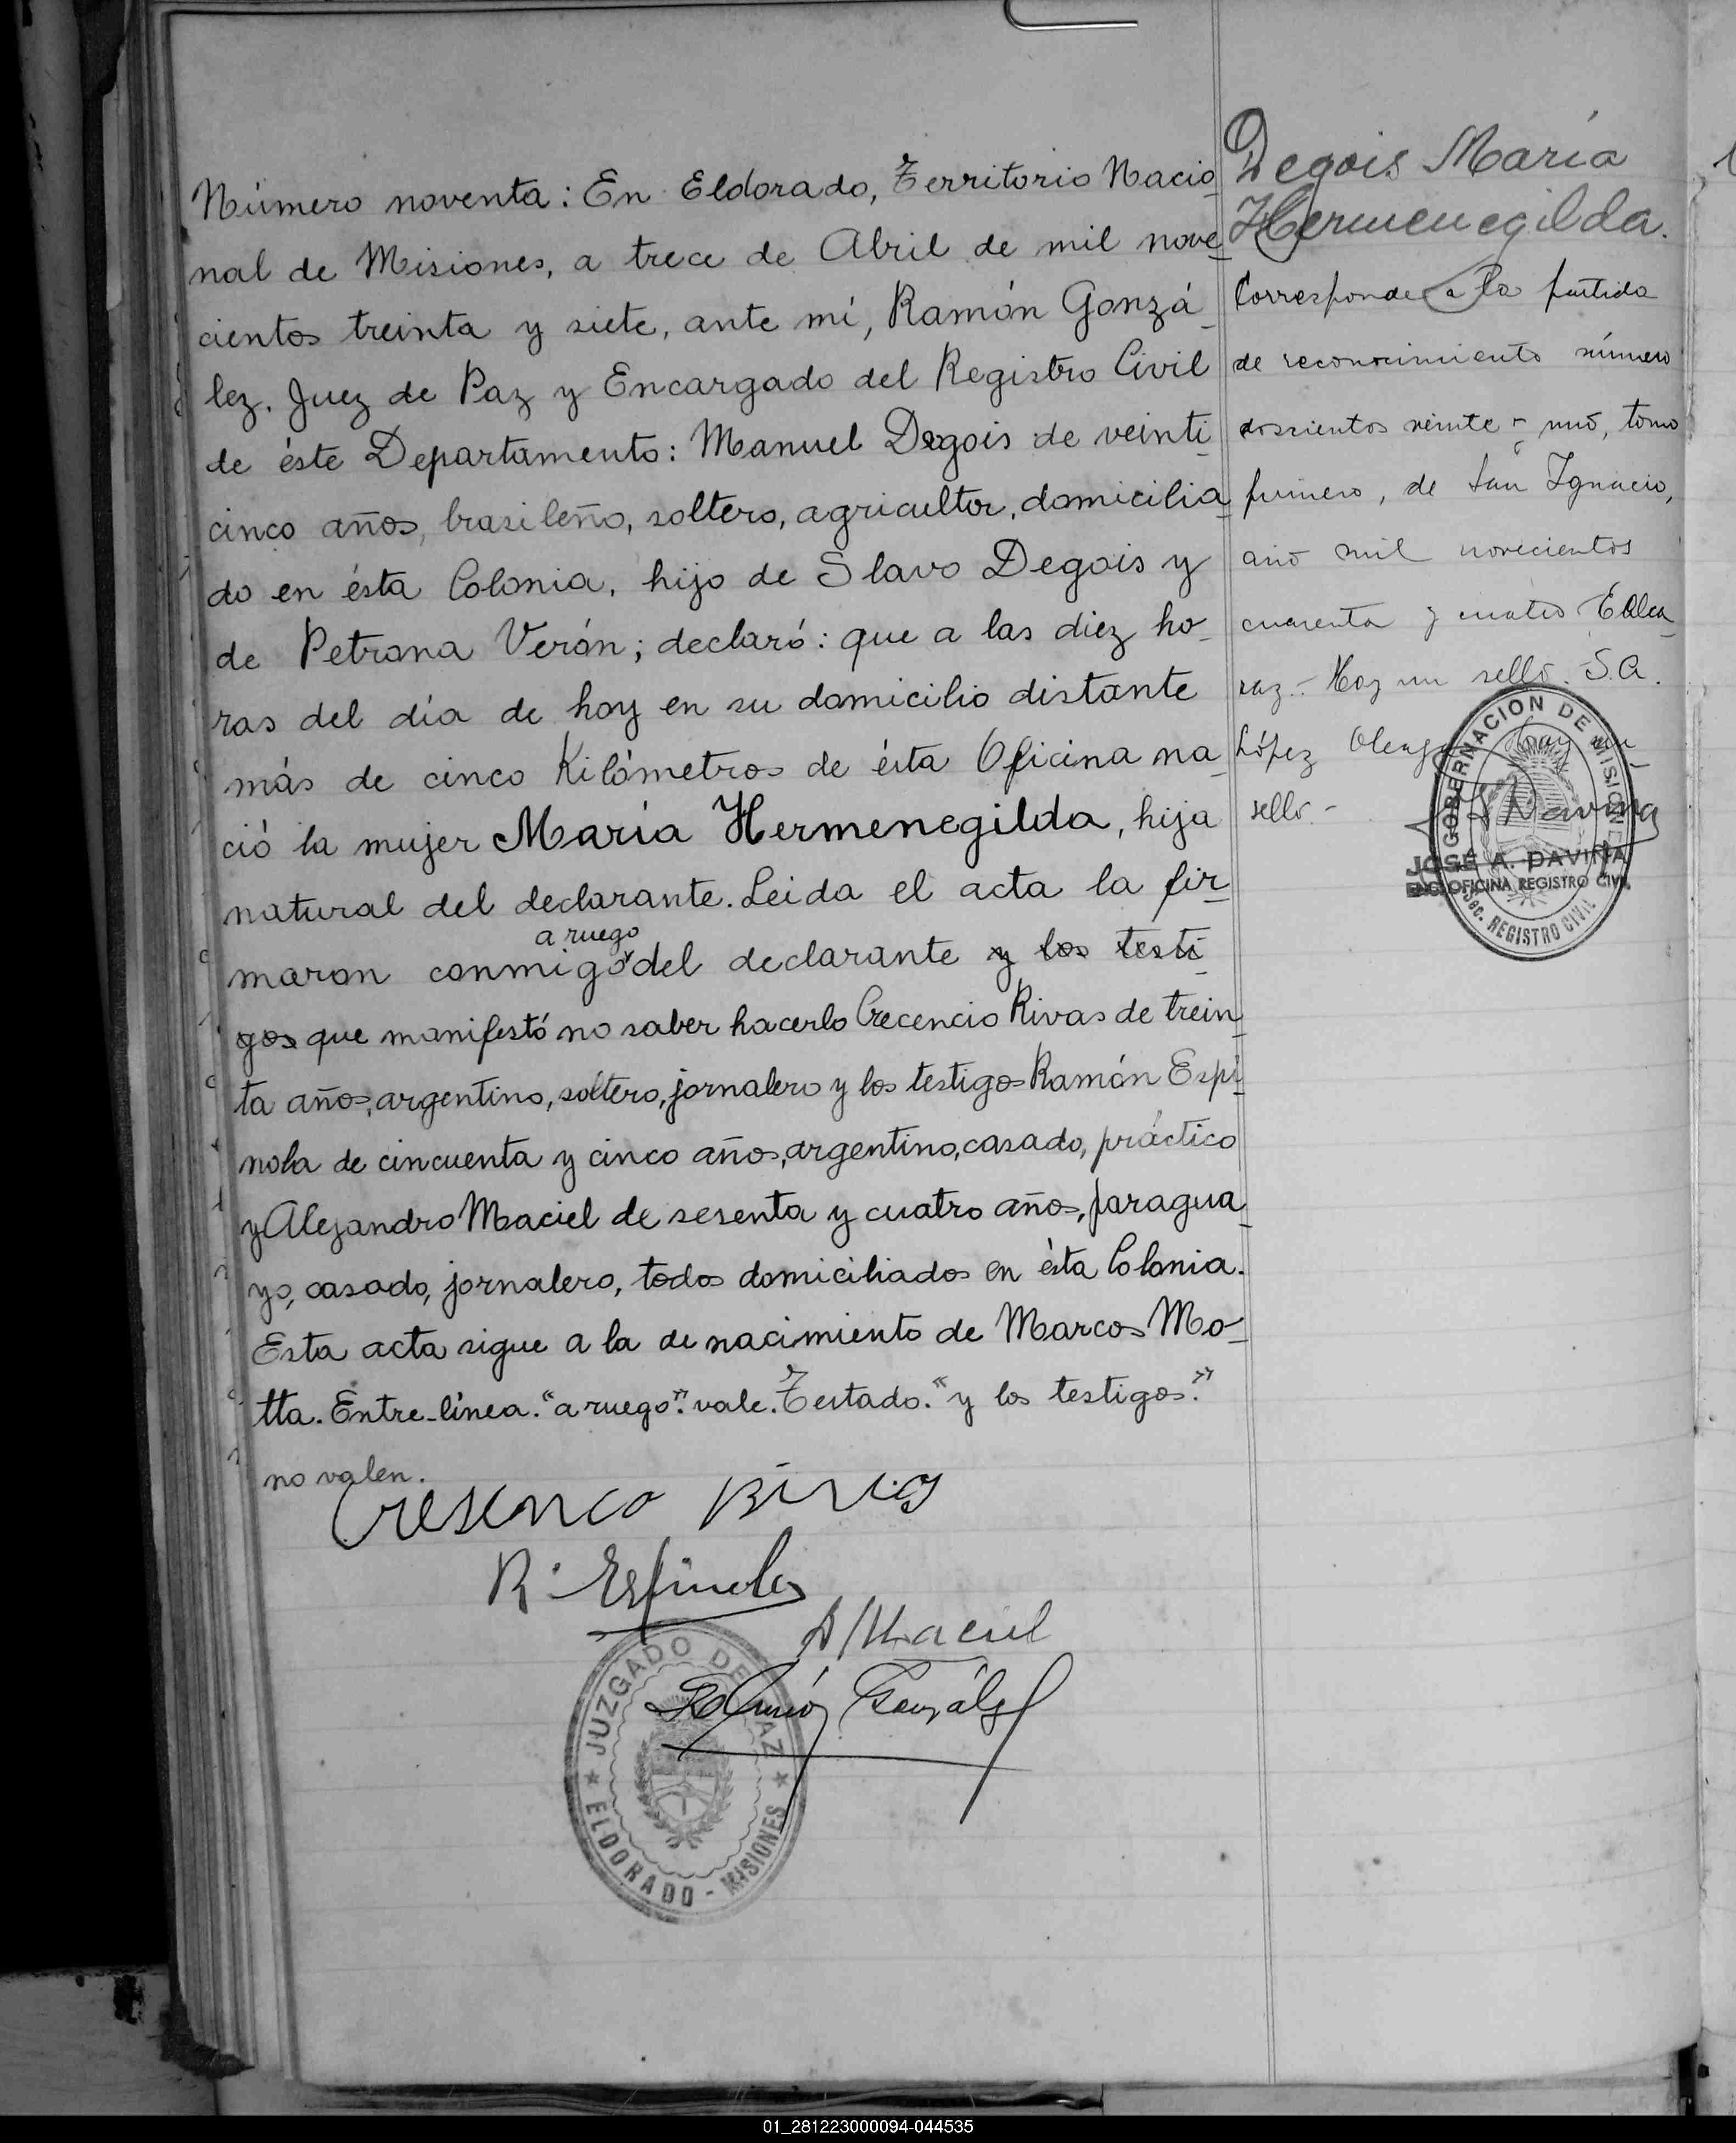 Número noventa: En Eldorado, Territorio Nacio-
nal de Misiones, a trece de Abril de mil nove-
cientos treinta y siete, ante mí, Ramón Gonzá-
lez, Juez de Paz y Encargado del Registro Civil
de éste Departamento: Manuel Degois de veinti-
cinco años, brasileño, soltero, agricultor, domicilia-
do en ésta Colonia, hijo de Slavo Degois y
de Petrona Verón; declaró: que a las diez ho-
ras del día de hoy en su domicilio distante
más de cinco Kilómetros de ésta Oficina na-
ció la mujer María Hermenegilda, hija
natural del declarante. Leida el acta la fir-
a ruego
maron conmigo del declarante y los testi-
gos que manifestó no saber hacerlo Crecencio Rivas de trein-
ta años, argentino, soltero, jornalero y los testigos Ramón Espí-
nola de cincuenta y cinco años, argentino, casado, práctico
y Alejandro Maciel de sesenta y cuatro años, paragua-
yo, casado, jornalero, todos domiciliados en ésta Colonia.
Esta acta sigue a la de nacimiento de Marcos Mo-
tta. Entre-línea. "a ruego". vale. Testado. "y los testigos."
no valen.
Cresenco Rivas
R. Espinola
A Maciel
Ramón González
JUZGADO DE PAZ
ELDORADO - MISIONES
Degois María
Hermenegilda.
Corresponde a la partida
de reconocimiento número
doscientos veinte y uno, tomo
primero, de San Ignacio,
año mil novecientos
cuarenta y cuatro E Alca-
raz.- Hay un sello. S.A.
López hay un
sello.-
GOBERNACION DE MISIONES
JOSÉ A. DAVIÑA
ENC. OFICINA REGISTRO CIVIL
Sec. REGISTRO CIVIL
01_281223000094-044535